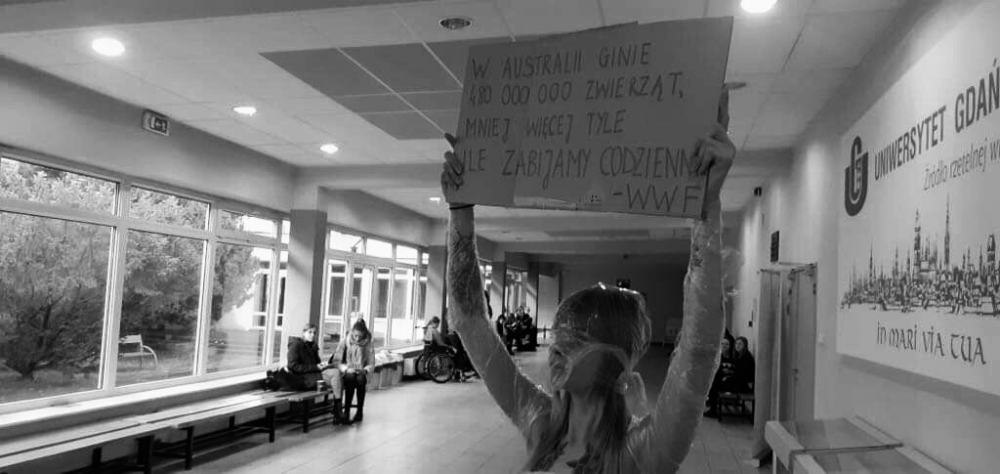 W AUSTRALII GINIE
480 000 000 ZWIERZĄT,
MNIEJ WIĘCEJ TYLE
ILE ZABIJAMY CODZIENNIE
-WWF
UNIWERSYTET GDAŃ
Źródło rzetelnej
in mari via tua